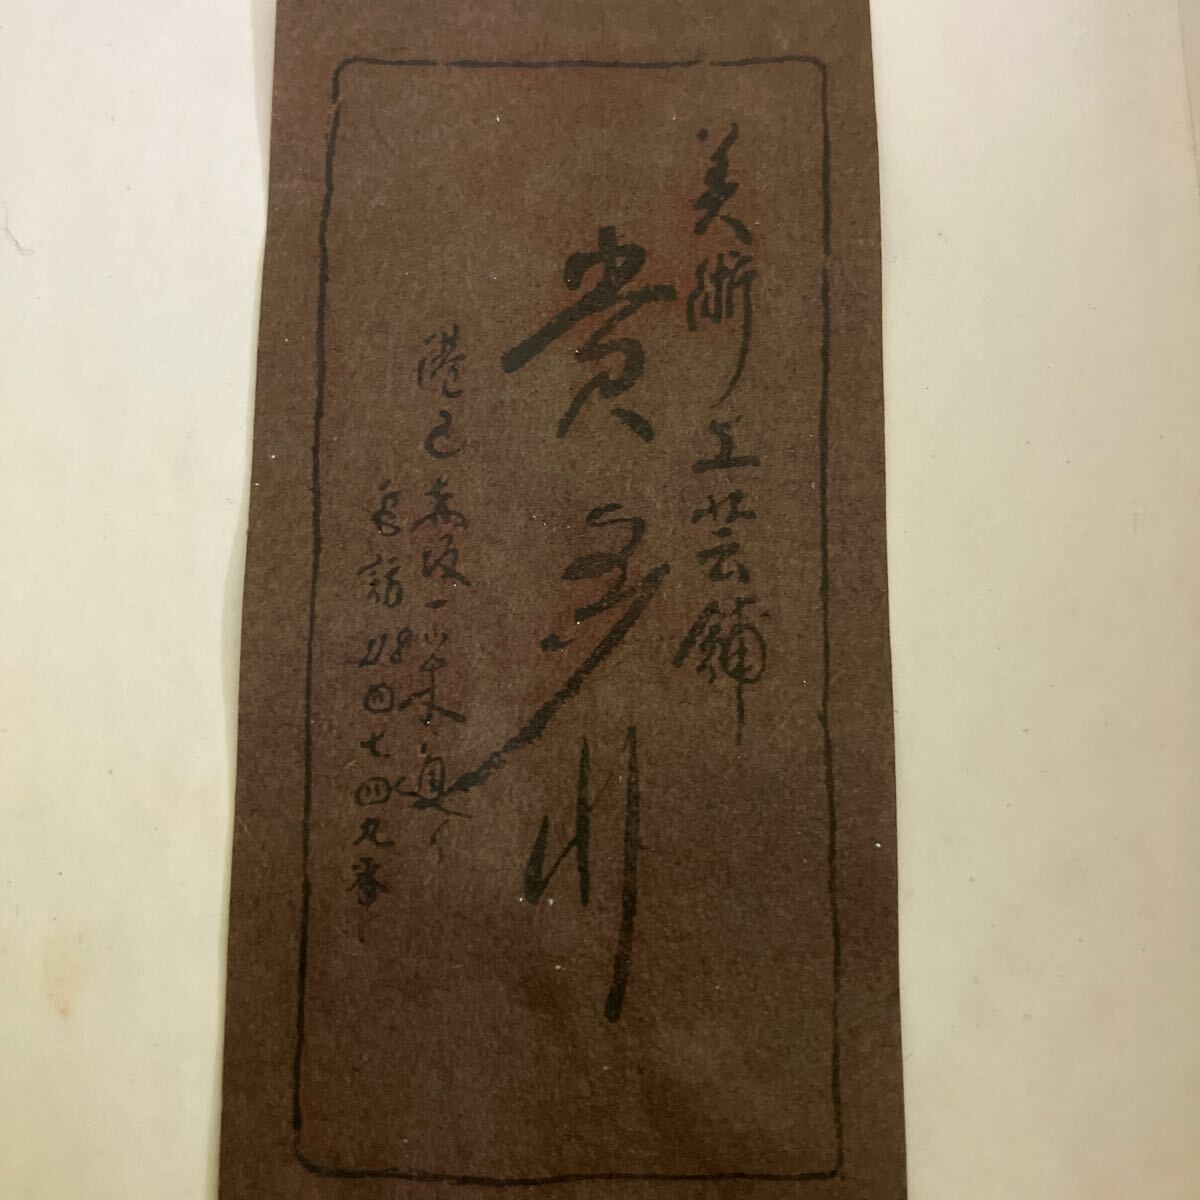 美術工芸舗
貴多川
港区赤坂一ツ木通り
電話48四七四九番